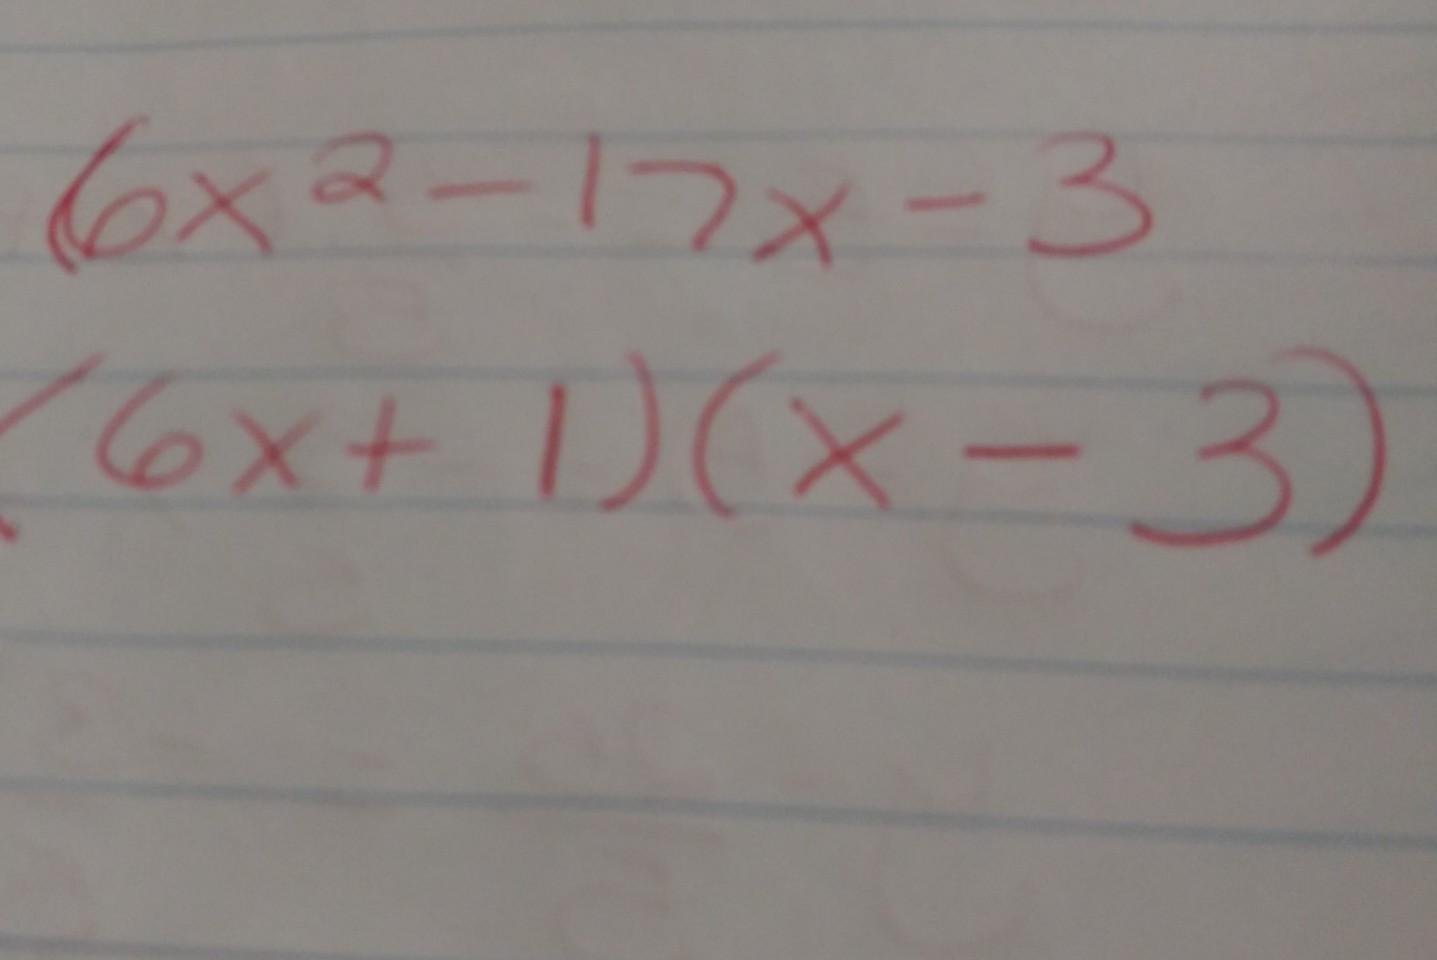 6x² - 17x - 3
(6x + 1)(x - 3)